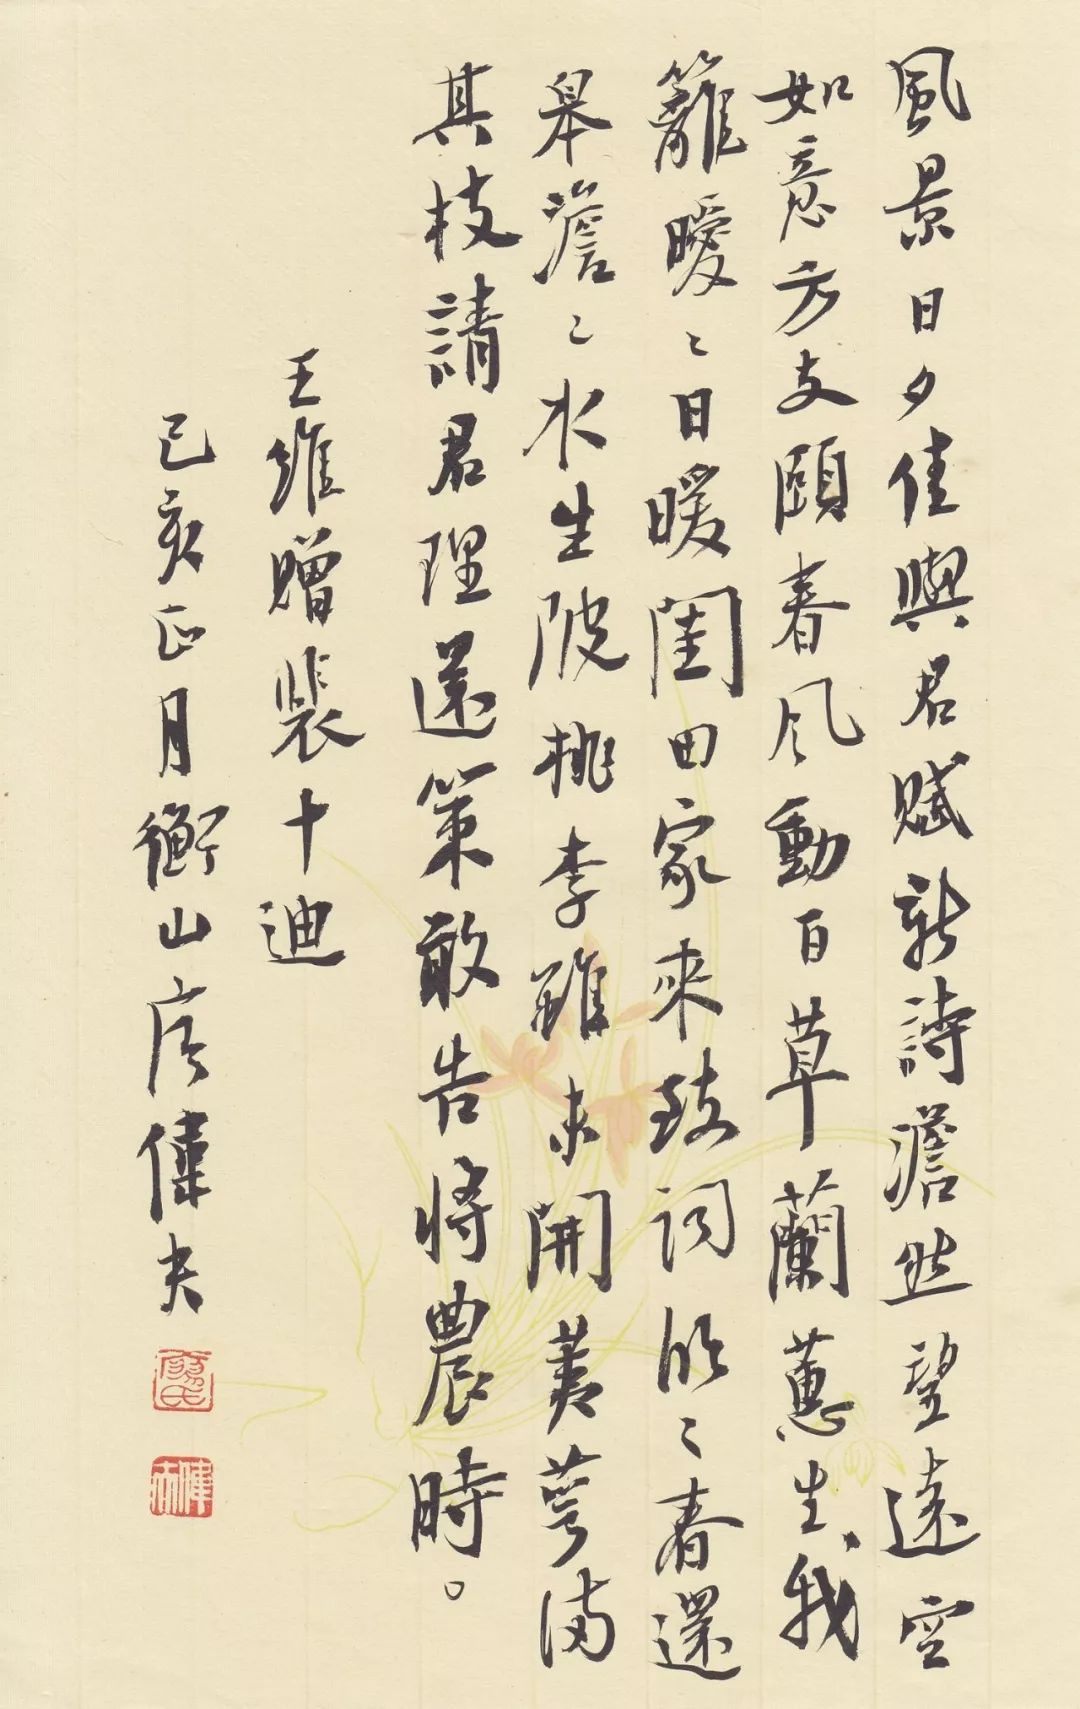 風景日夕佳與君賦新詩澹然望遠空
如意方支頤春风動百草蘭蕙生、我
籬曖〻日暖閨田家來致詞欣〻春還
皋澹〻水生陂桃李雖未開荑萼满
其枝請君理還策敢告將農時。
王維贈裴十迪
己亥正月衡山偉夫
偉夫